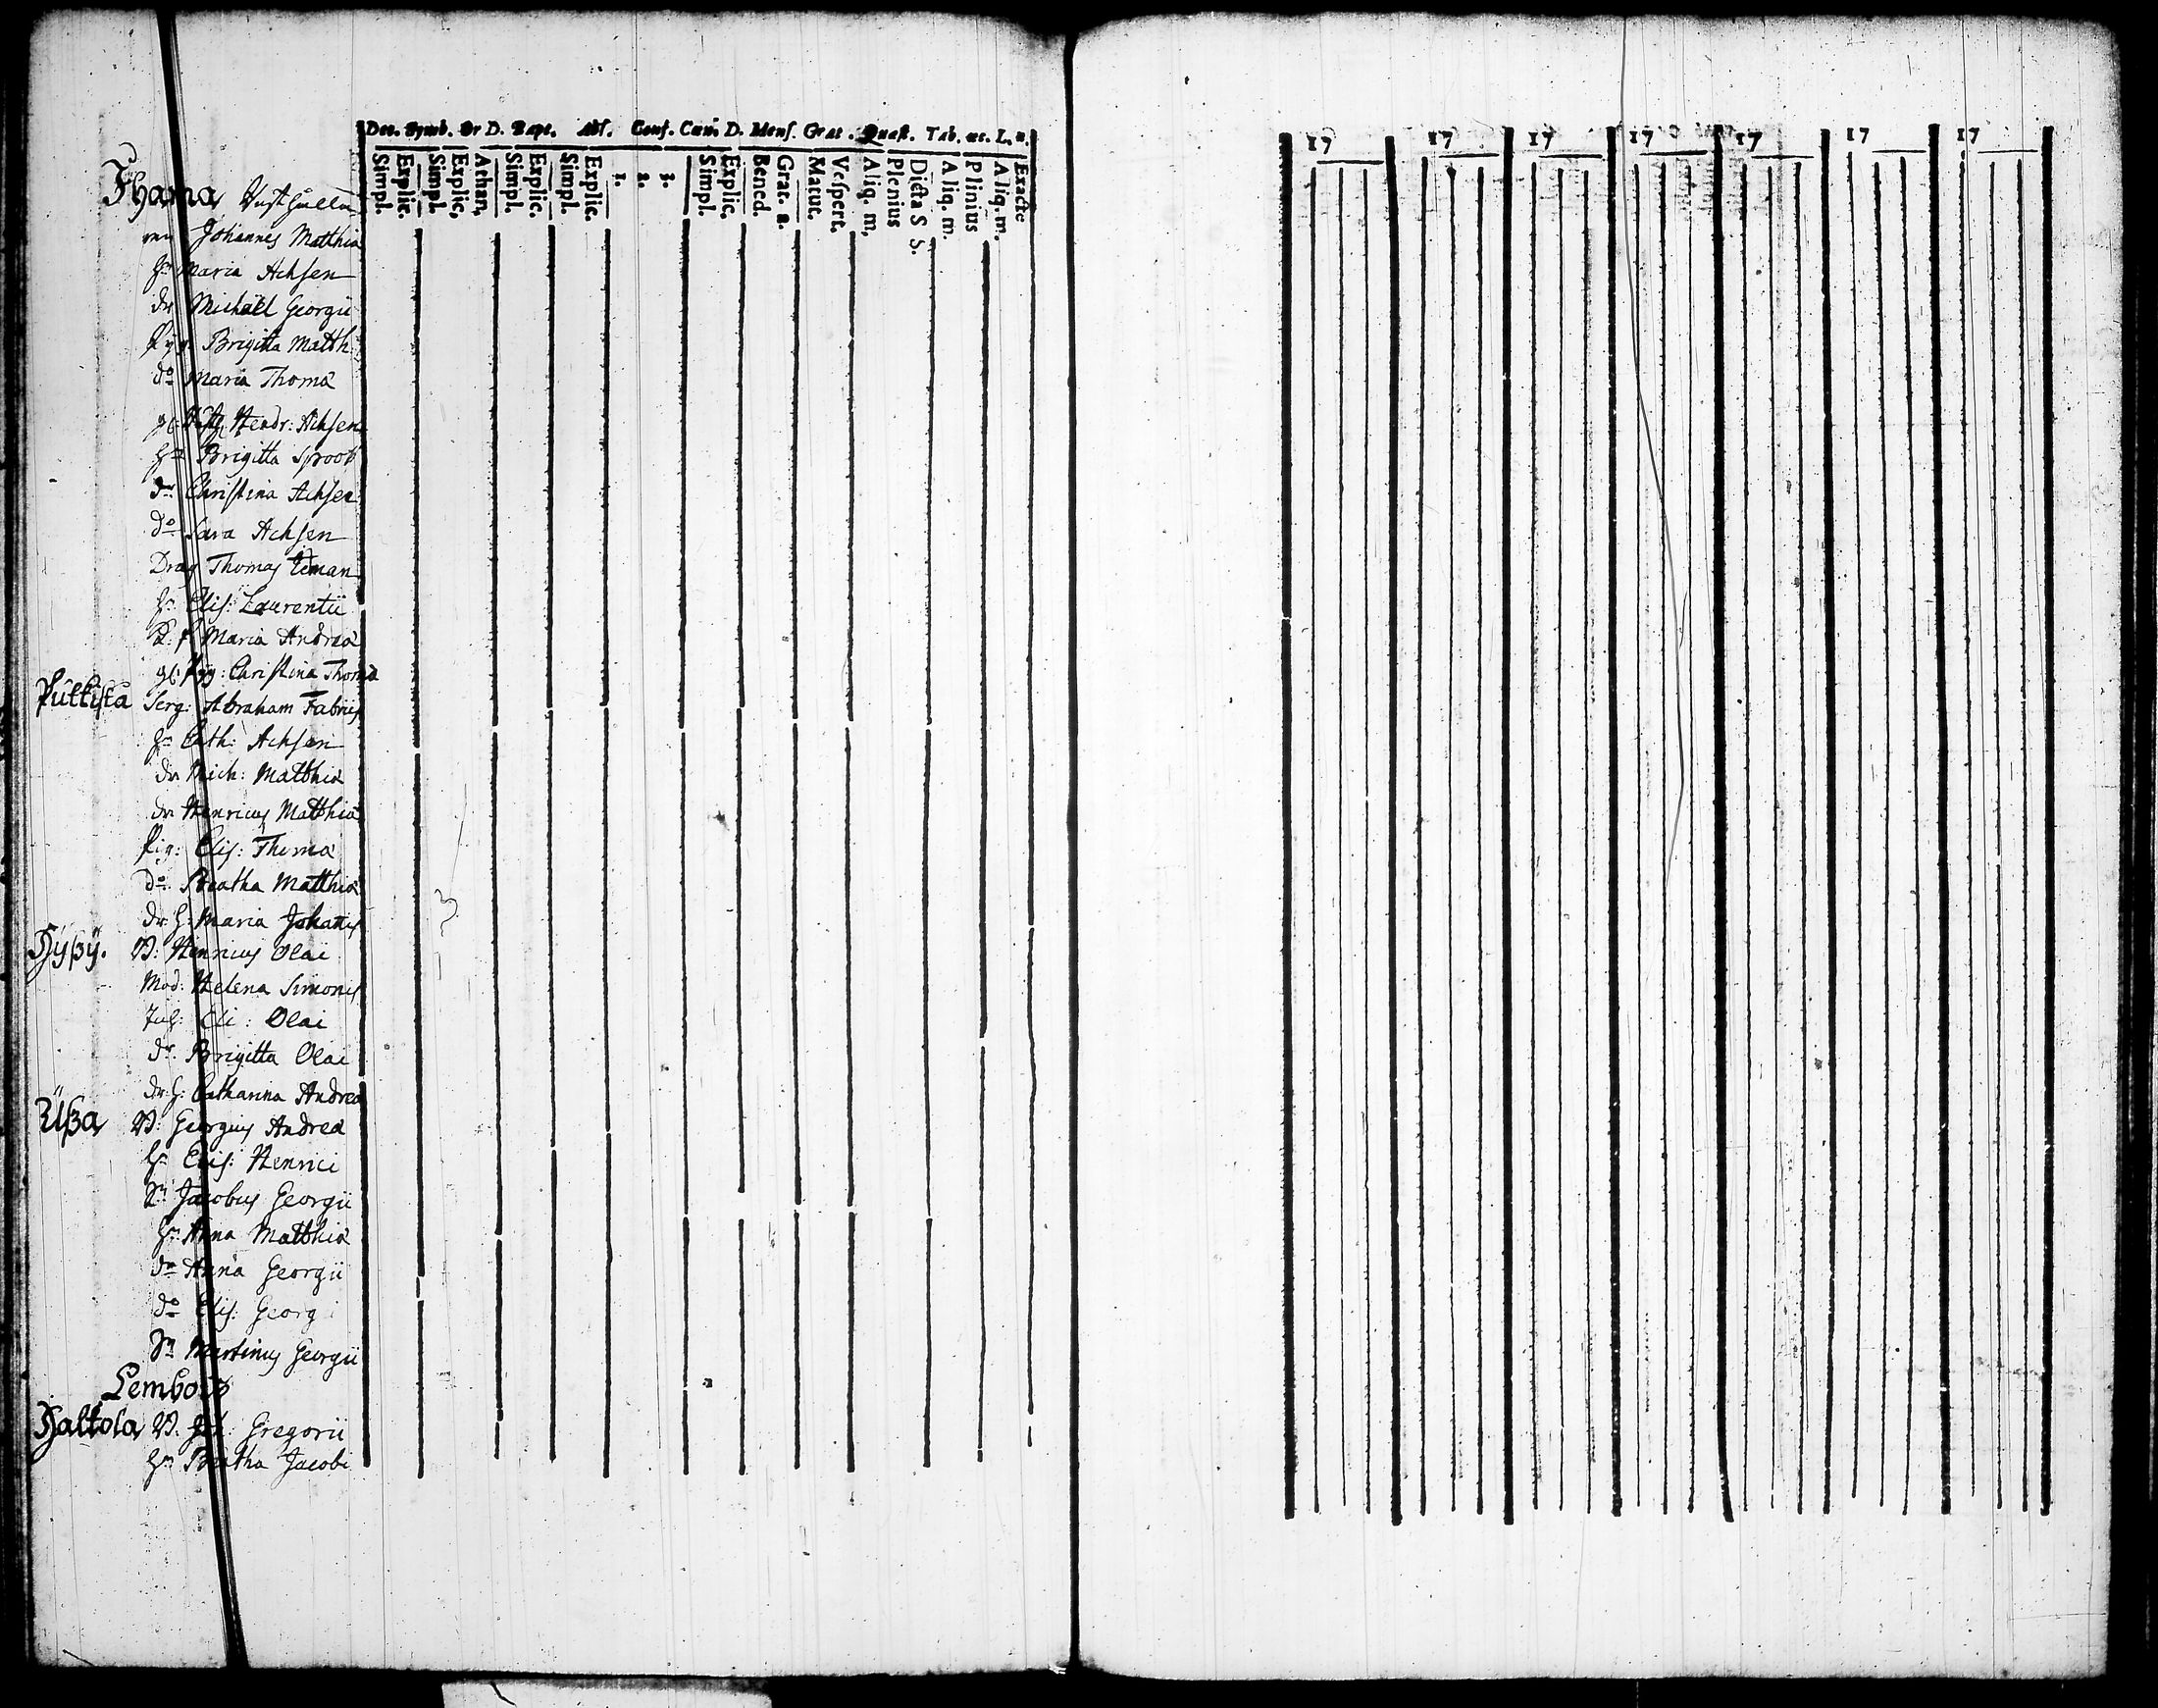 Dec. Symb. Or D. Bapt. Abs. Conf. Cœn. D. Mens. Grat. Quæst. Tab. œc. L. n.
Simpl. Explic. Simpl. Explic, Athan, Simpl. Explic. Simpl. Explic. 1. 2. 3. Simpl. Explic, Bened. Grat. a. Matut. Vespert. Aliq. m, Plenius Dicta S S. Aliq. m. Plinius Aliq. m. Exacte
17 17 17 17 17 17 17
Johannes Matthiæ
hu Maria Achsen
dr Michäel Georgii
Pyg: Brigitta Matth:
do Maria Thomæ
Hendr: Achsen
hu Brigitta Sproob
dr Christina Achsen
do Sara Achsen
Drag Thomas
hu Elis: Laurentii
Maria Andreæ
Pyg: Christina Thomæ
Puttista Serg: Abraham Fabrius
hu Cath: Achsen
dr Mich: Matthiæ
dr Henricus Matthiæ
Pig: Elis: Thomæ
do Beatha Matthiæ
dr: h: Maria Johanis
Henricus Olai
Mod: Helena Simonis
Olai
dr Brigitta Olai
dr: h: Catharina Andreæ
Georgius Andreæ
hu Elis: Henrici
Sn Jacobus Georgii
hu Anna Matthiæ
dr Anna Georgii
do Elis: Georg
Sn Martinus Georgii
Lembois
Joh: Gregorii
hu Beatha Jacobi